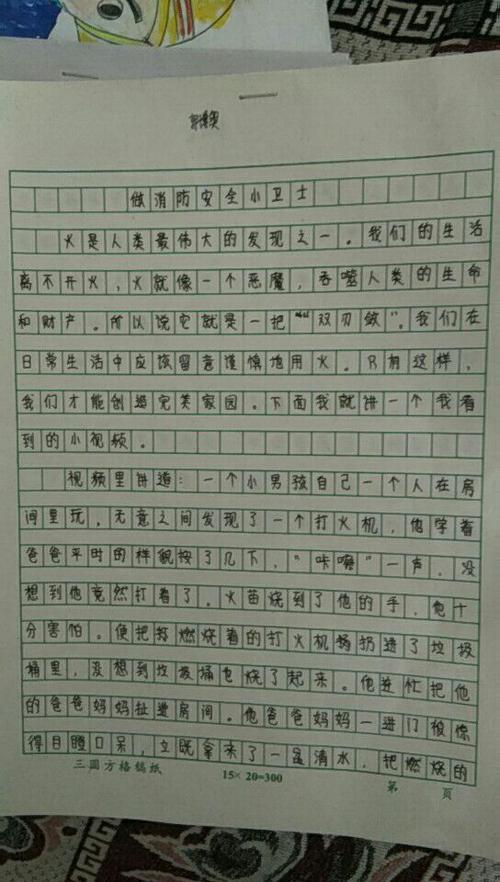 做消防安全小卫士
火是人类最伟大的发现之一。我们的生活
离不开火，火就像一个恶魔，吞噬人类的生命
和财产。所以说它就是一把“双刃敛”。我们在
日常生活中应该留意谨慎地用火。只有这样，
我们才能创造完美家园。下面我就讲一个我看
到的小视频。
视频里讲道：一个小男孩自己一个人在房
间里玩，无意之间发现了一个打火机，他学着
爸爸平时的样貌按了几下，“咔嚓”一声，没
想到他竟然打着了。火苗烧到了他的手，他十
分害怕。便把燃烧着的打火机扔进了垃圾
桶里，没想到垃圾桶也烧了起来。他连忙把他
的爸爸妈妈扯进房间。他爸爸妈妈一进门被惊
得目瞪口呆，立既拿来了一盆清水，把燃烧的
三圆方格稿纸
15×20=300
第 页